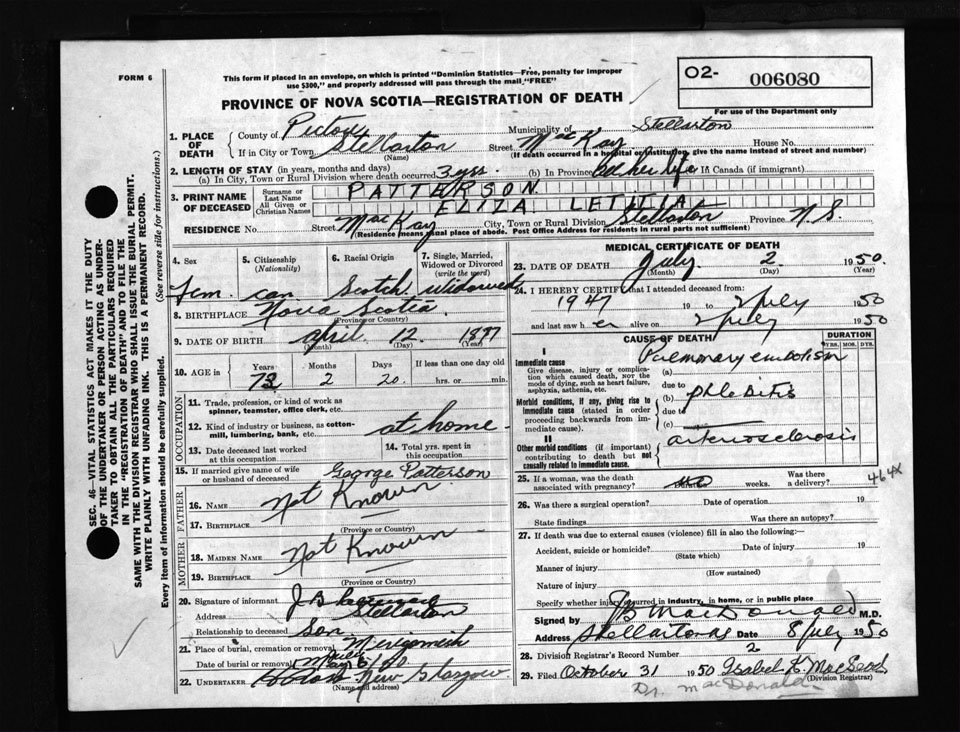 FORM 6
This form if placed in an envelope, on which is printed "Dominion Statistics—Free, penalty for improper
use $300," and properly addressed will pass through the mail "FREE"
02- 006080
PROVINCE OF NOVA SCOTIA—REGISTRATION OF DEATH
For use of the Department only
1. PLACE OF DEATH { County of Pictou Municipality of Stellarton
If in City or Town Stellarton (Name) Street MacKay House No.
(If death occurred in a hospital or institution, give the name instead of street and number)
2. LENGTH OF STAY (in years, months and days)
(a) In City, Town or Rural Division where death occurred 3 yrs. (b) In Province all her life In Canada (if immigrant)
3. PRINT NAME OF DECEASED { Surname or Last Name PATTERSON
All Given or Christian Names ELIZA LETITIA
RESIDENCE No. Street MacKay City, Town or Rural Division Stellarton Province N.S.
(Residence means usual place of abode. Post Office Address for residents in rural parts not sufficient)
4. Sex 5. Citizenship (Nationality) 6. Racial Origin 7. Single, Married, Widowed or Divorced (write the word)
Fem. can. Scotch widowed
8. BIRTHPLACE Nova Scotia
(Province or Country)
9. DATE OF BIRTH April 12 18
(Month) (Day) (Year)
10. AGE in { Years Months Days If less than one day old
73 2 20. hrs. or min.
OCCUPATION
11. Trade, profession, or kind of work as
spinner, teamster, office clerk, etc.
12. Kind of industry or business, as cotton-
mill, lumbering, bank, etc. at home
13. Date deceased last worked at this occupation 14. Total yrs. spent in this occupation
15. If married give name of wife or husband of deceased George Patterson
FATHER
16. NAME Not Known
17. BIRTHPLACE
(Province or Country)
MOTHER
18. MAIDEN NAME Not Known
19. BIRTHPLACE
(Province or Country)
20. Signature of informant J B
Address Stellarton
Relationship to deceased Son
21. Place of burial, cremation or removal Merigomish
Date of burial or removal
22. UNDERTAKER New Glasgow
(Name and address)
MEDICAL CERTIFICATE OF DEATH
23. DATE OF DEATH July 2 1950.
(Month) (Day) (Year)
24. I HEREBY CERTIFY that I attended deceased from:
1947 19 to 2 July 1950
and last saw her alive on 2 July 1950
CAUSE OF DEATH DURATION
YRS. MOS. DYS.
I
Immediate cause
Give disease, injury or complication which caused death, NOT the mode of dying, such as heart failure, asphyxia, asthenia, etc.
(a) Pulmonary embolism
due to
Morbid conditions, if any, giving rise to immediate cause (stated in order proceeding backwards from immediate cause).
(b) phlebitis
due to
(c)
II
Other morbid conditions (if important) contributing to death but not causally related to immediate cause.
arteriosclerosis
464X
25. If a woman, was the death associated with pregnancy? no weeks. Was there a delivery?
26. Was there a surgical operation? Date of operation 19
State findings Was there an autopsy?
27. If death was due to external causes (violence) fill in also the following:—
Accident, suicide or homicide? Date of injury 19
(State which)
Manner of injury
(How sustained)
Nature of injury
Specify whether injury occurred in industry, in home, or in public place
Signed by JB MacDonald M.D.
Address Stellarton NS Date 8 July 1950
28. Division Registrar's Record Number 2
29. Filed October 31 1950 Isabel K. MacLeod
(Division Registrar)
Dr. MacDonald
SEC. 46—VITAL STATISTICS ACT MAKES IT THE DUTY
OF THE UNDERTAKER OR PERSON ACTING AS UNDER-
TAKER TO OBTAIN ALL THE PARTICULARS REQUIRED
IN THE "REGISTRATION OF DEATH" AND TO FILE THE
SAME WITH THE DIVISION REGISTRAR WHO SHALL ISSUE THE BURIAL PERMIT.
WRITE PLAINLY WITH UNFADING INK. THIS IS A PERMANENT RECORD.
Every item of information should be carefully supplied. (See reverse side for instructions.)